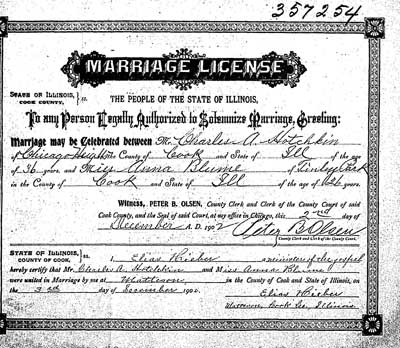 357254
MARRIAGE LICENSE
STATE OF ILLINOIS, COOK COUNTY, } ss. THE PEOPLE OF THE STATE OF ILLINOIS,
To any Person Legally Authorized to Solemnize Marriage, Greeting:
Marriage may be Celebrated between Mr. Charles A. Hotchkin
of Chicago Heights in the County of Cook and State of Ill of the age
of 36 years and Miss Anna Blume of Tinley Park
in the County of Cook and State of Ill of the age of 26 years.
WITNESS, PETER B. OLSEN, County Clerk and Clerk of the County Court of said
Cook County, and the Seal of said Court, at my office in Chicago, this 2nd day of
December A.D. 1902 Peter B Olsen
County Clerk and Clerk of the County Court.
STATE OF ILLINOIS, COUNTY OF COOK. } ss. I, Elias a minister of the gospel
hereby certify that Mr. Charles A. Hotchkin and Miss Anna Blume
were united in Marriage by me at Matteson in the County of Cook and State of Illinois, on
the day of December 1902.
Elias
Matteson, Cook Co. Illinois